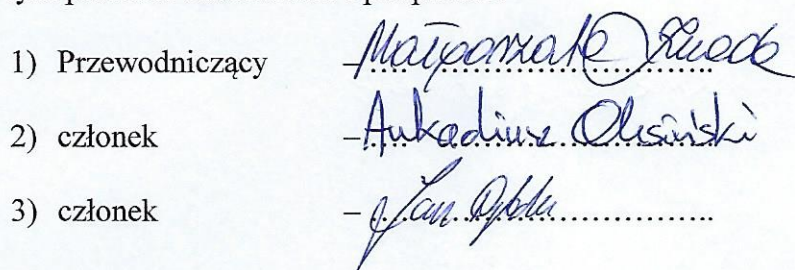 1) Przewodniczący – Małgorzata
2) członek – Arkadiusz Olesiński
3) członek – Jan